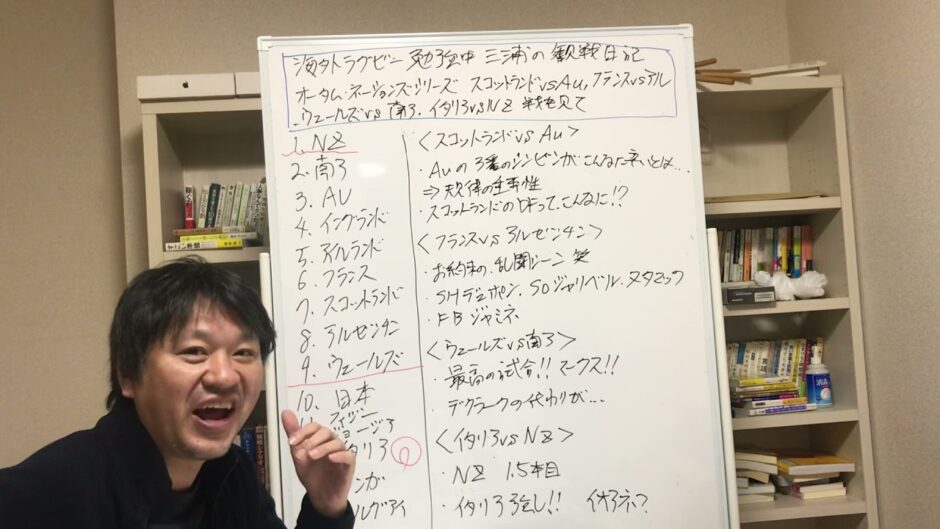 海外ラグビー 勉強中 三浦の観戦日記
オータム・ネーションズシリーズ スコットランドvsAu, フランスvsアル
・ウェールズvs南ア. イタリアvsNZ 戦を見て
1. NZ
2. 南ア
3. AU
4. イングランド
5. アイルランド
6. フランス
7. スコットランド
8. アルゼンチン
9. ウェールズ
10. 日本
ジョージア
タリア
ンガ
ルグアイ
<スコットランドvs Au>
・Auの3番のシンビンがこんなに ... とは...
⇒規律の重要性
・スコットランドの ... って、こんなに!?
<フランスvsアルゼンチン>
・お約束の、乱闘シーン 笑
・SHデュポン. SOジャリベル. ヌタマック
・FB ジャミネ
<ウェールズvs南ア>
・最高の試合!! マークス!!
・デクラークの代わりが...
<イタリアvsNZ>
・NZ 1.5本目
・イタリア ... !! イオアネ?
消毒